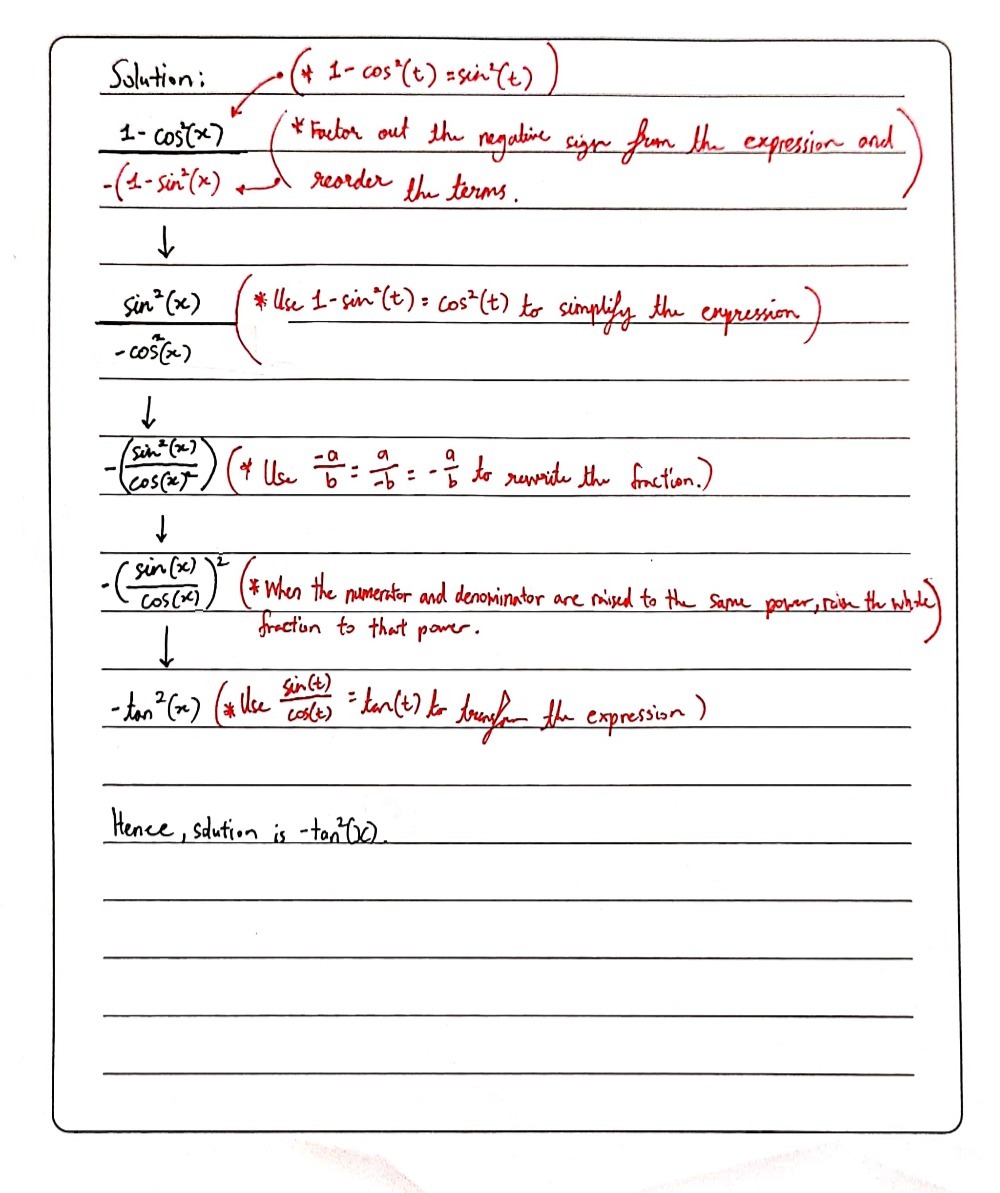 Solution: (* 1-cos²(t)=sin²(t))
1-cos²(x) (* Factor out the negative sign from the expression and
-(1-sin²(x) reorder the terms.)
↓
sin²(x) (* Use 1-sin²(t) = cos²(t) to simplify the expression)
-cos²(x)
↓
-(sin²(x)/cos(x)²) (* Use -a/b = a/-b = -a/b to rewrite the fraction.)
↓
-(sin(x)/cos(x))² (* When the numerator and denominator are raised to the same power, raise the whole
fraction to that power.)
↓
-tan²(x) (* Use sin(t)/cos(t) = tan(t) to transform the expression)
Hence, solution is -tan²(x).